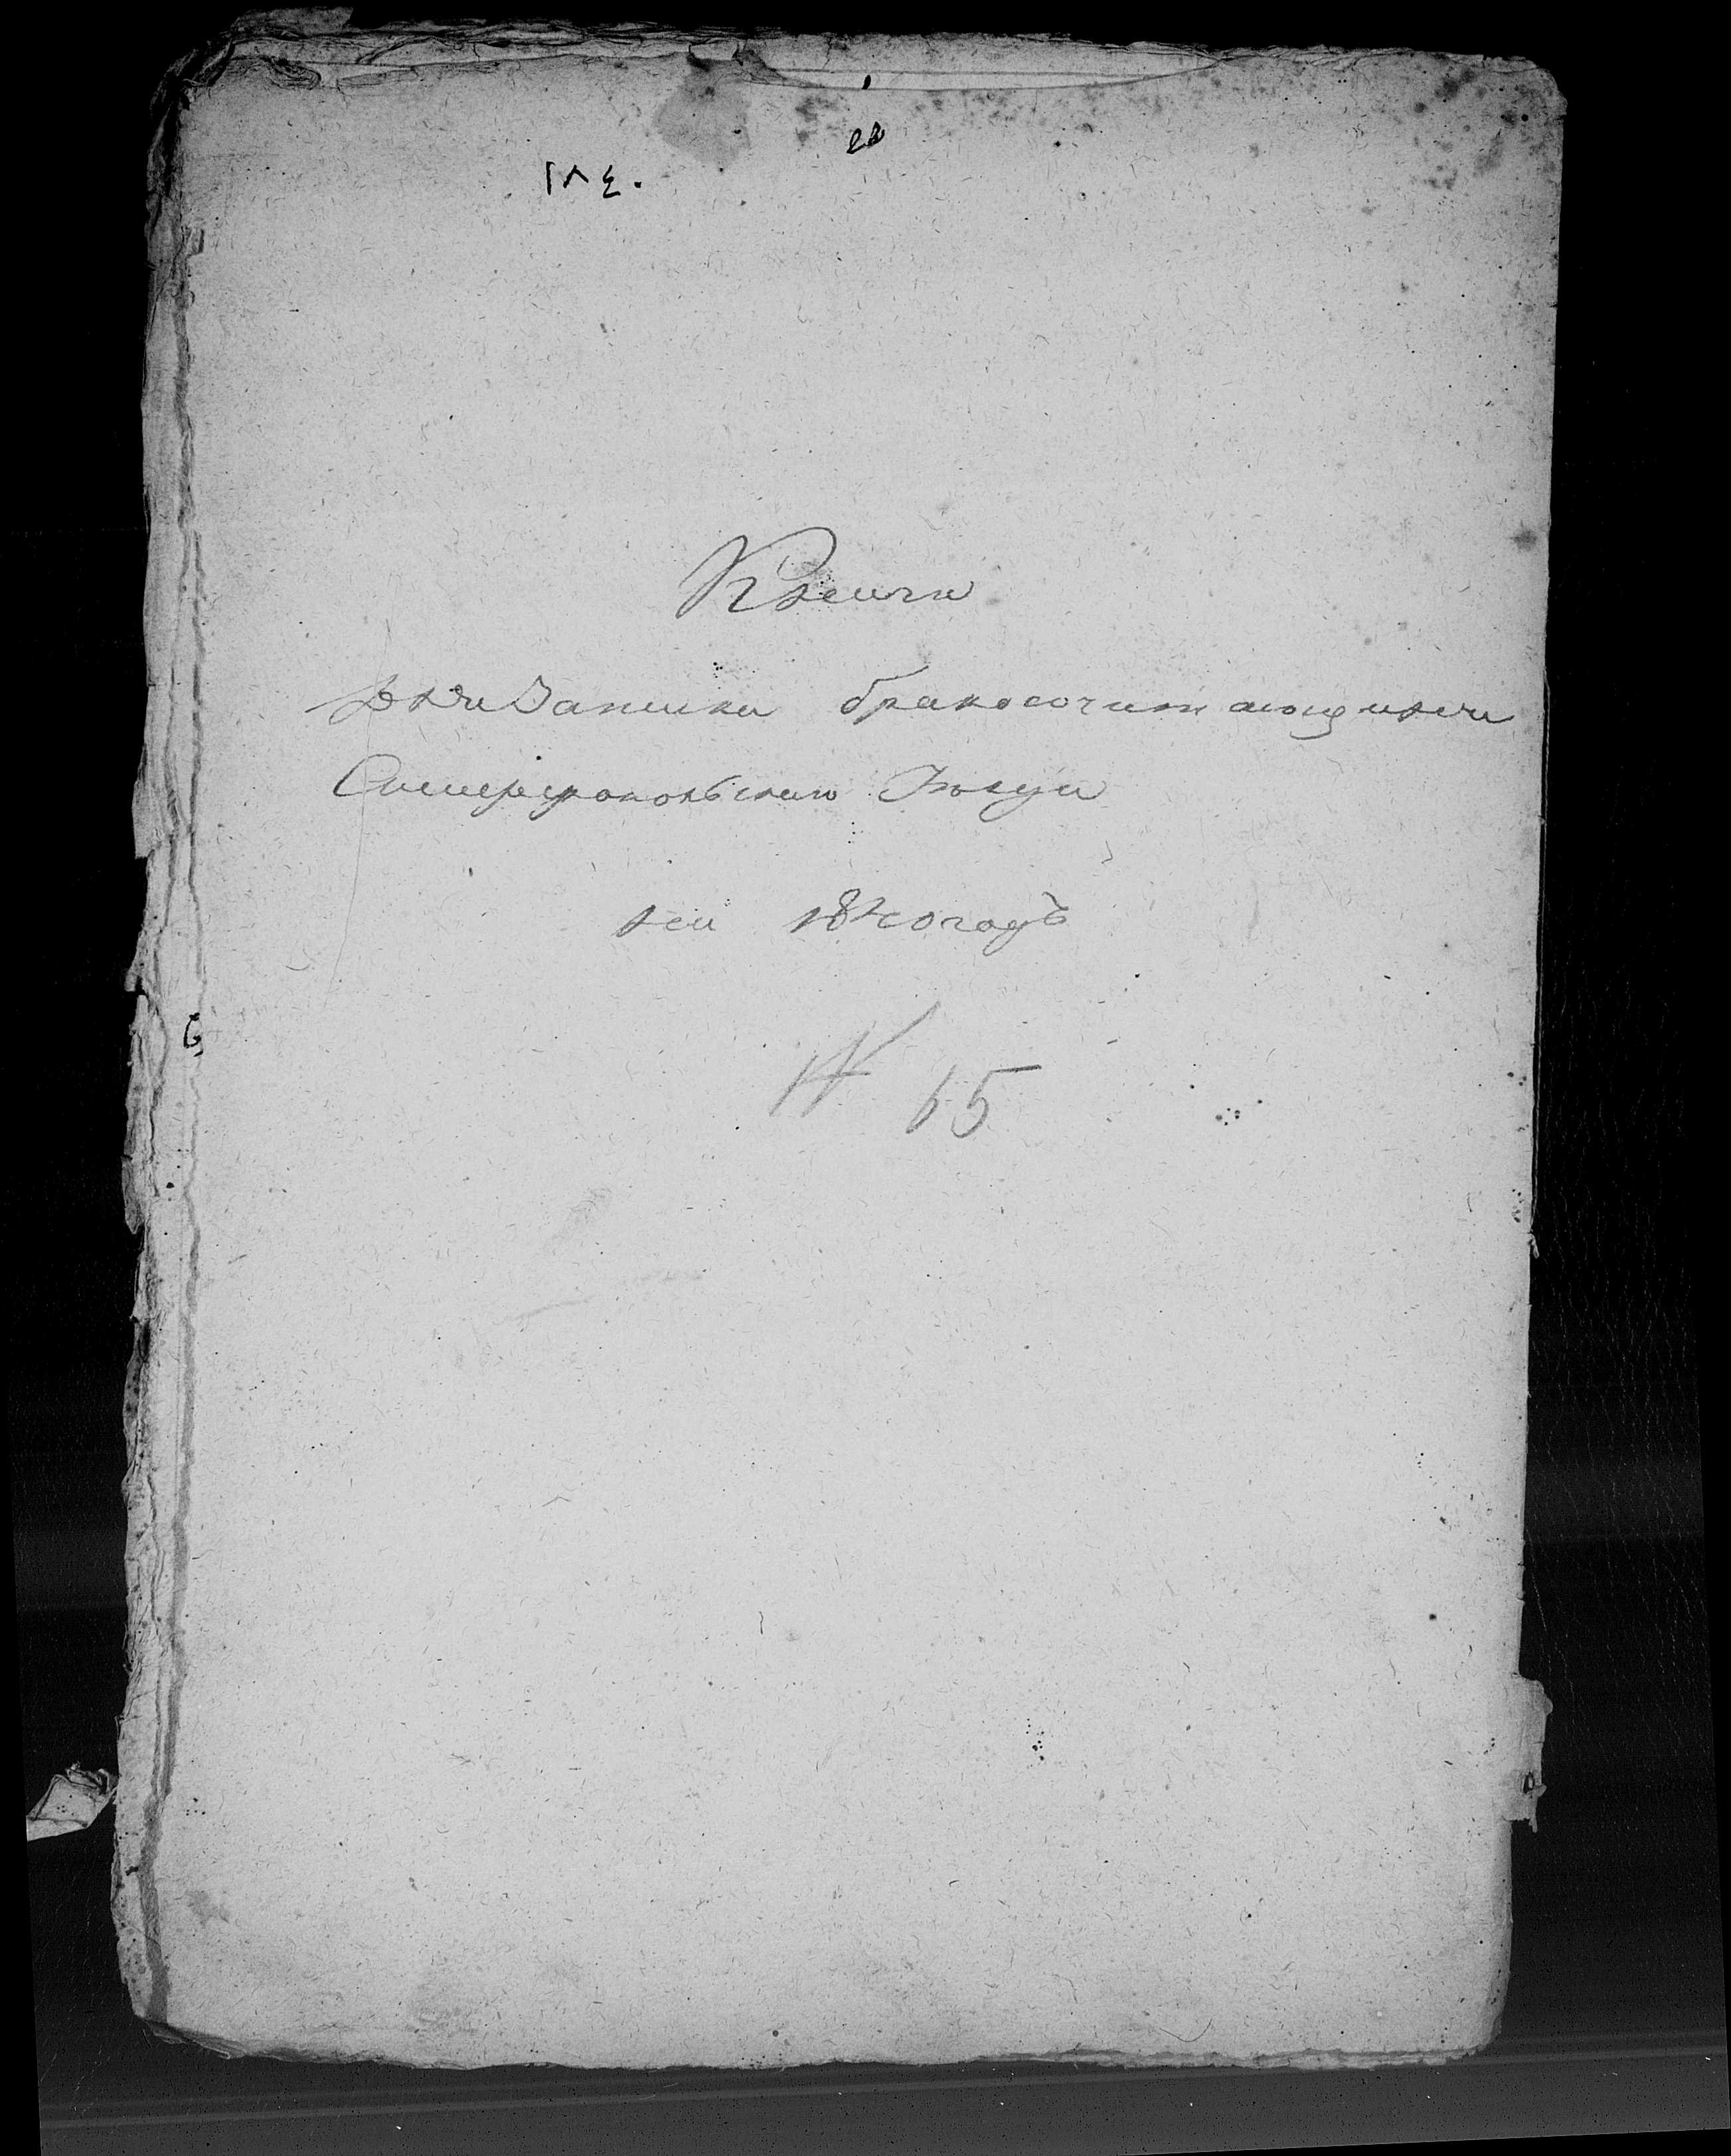 ١٨٤٠
Книга
для записки бракосочитающихся
Симферопольскаго
на 1840 годъ
№ 65